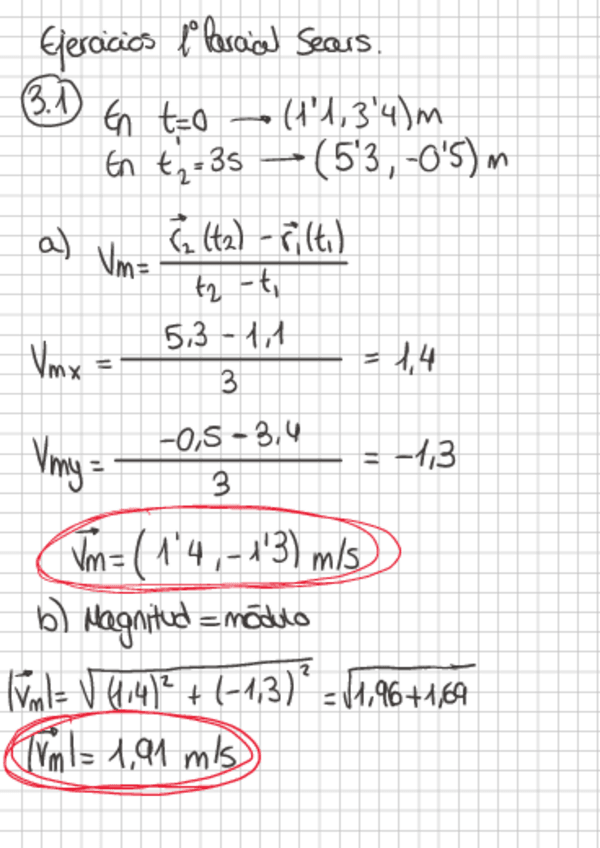 Ejercicios 1º Parcial Sears.
3.1 En t=0 → (1'1, 3'4) m
En t₂=3s → (5'3, -0'5) m
a) Vm = (r⃗₂(t₂) - r⃗₁(t₁)) / (t₂ - t₁)
Vmx = (5,3 - 1,1) / 3 = 1,4
Vmy = (-0,5 - 3,4) / 3 = -1,3
V⃗m = (1'4, -1'3) m/s
b) Magnitud = módulo
|v⃗m| = √((1,4)² + (-1,3)²) = √(1,96+1,69)
|v⃗m| = 1,91 m/s